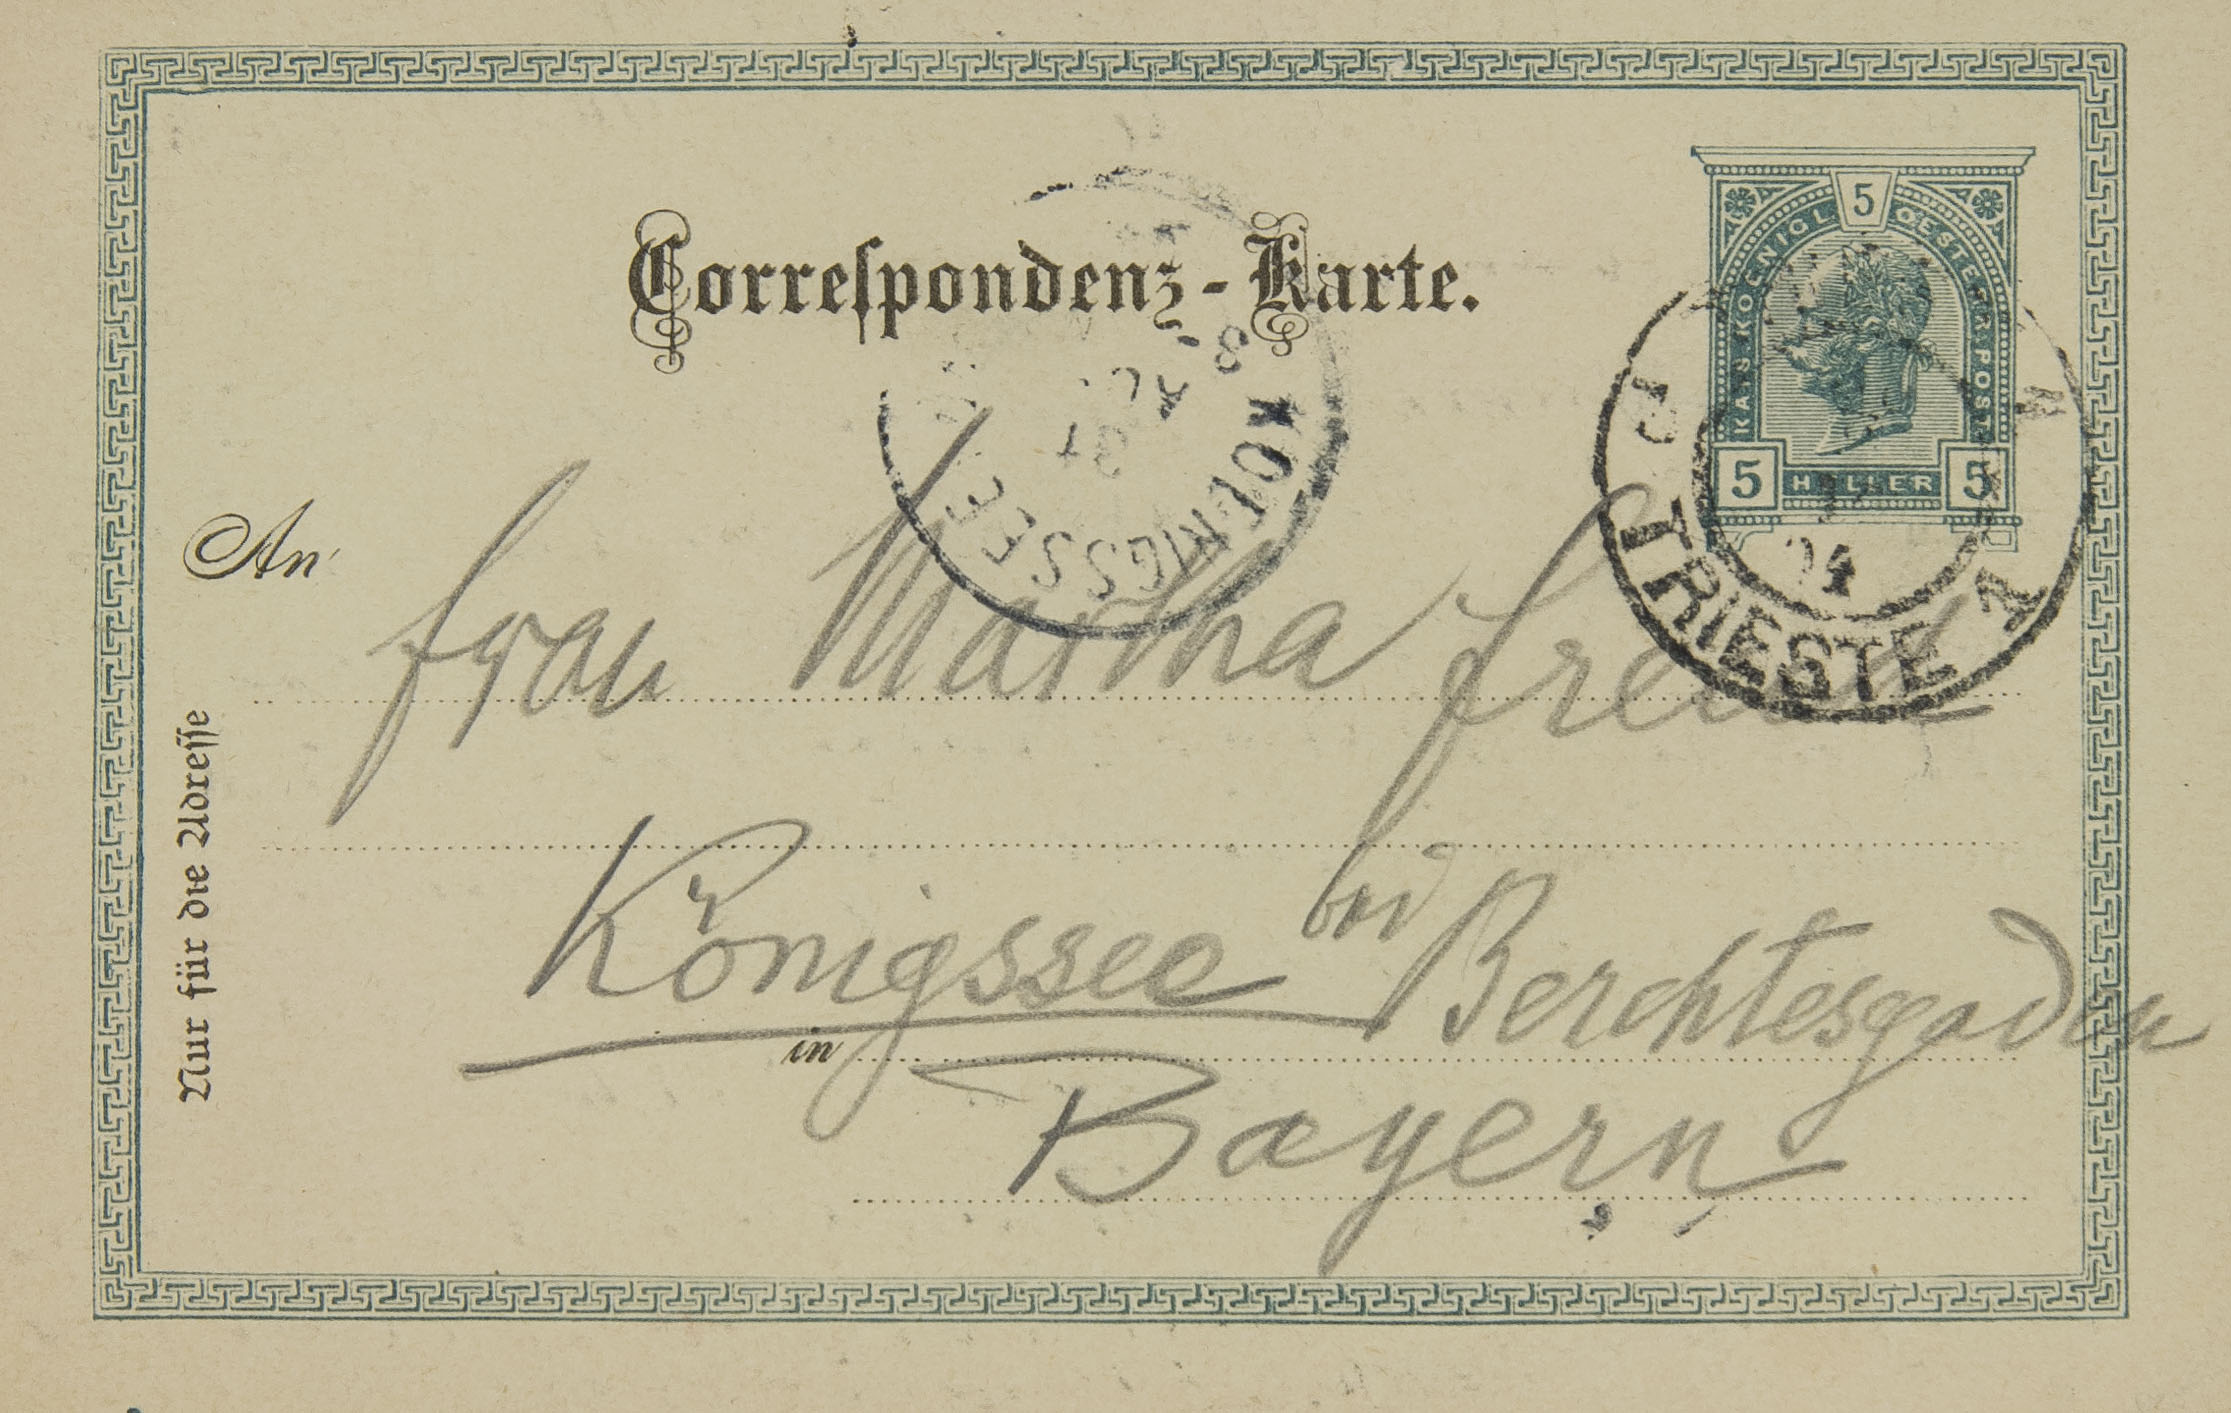 Correspondenz-Karte.
5
KAIS. KOENIGL. OESTERR. POST.
5 HELLER 5
TRIESTE
KÖNIGSSEE
31
An
Frau Martha Freud
Königssee bei Berchtesgaden
in
Bayern
Nur für die Adresse